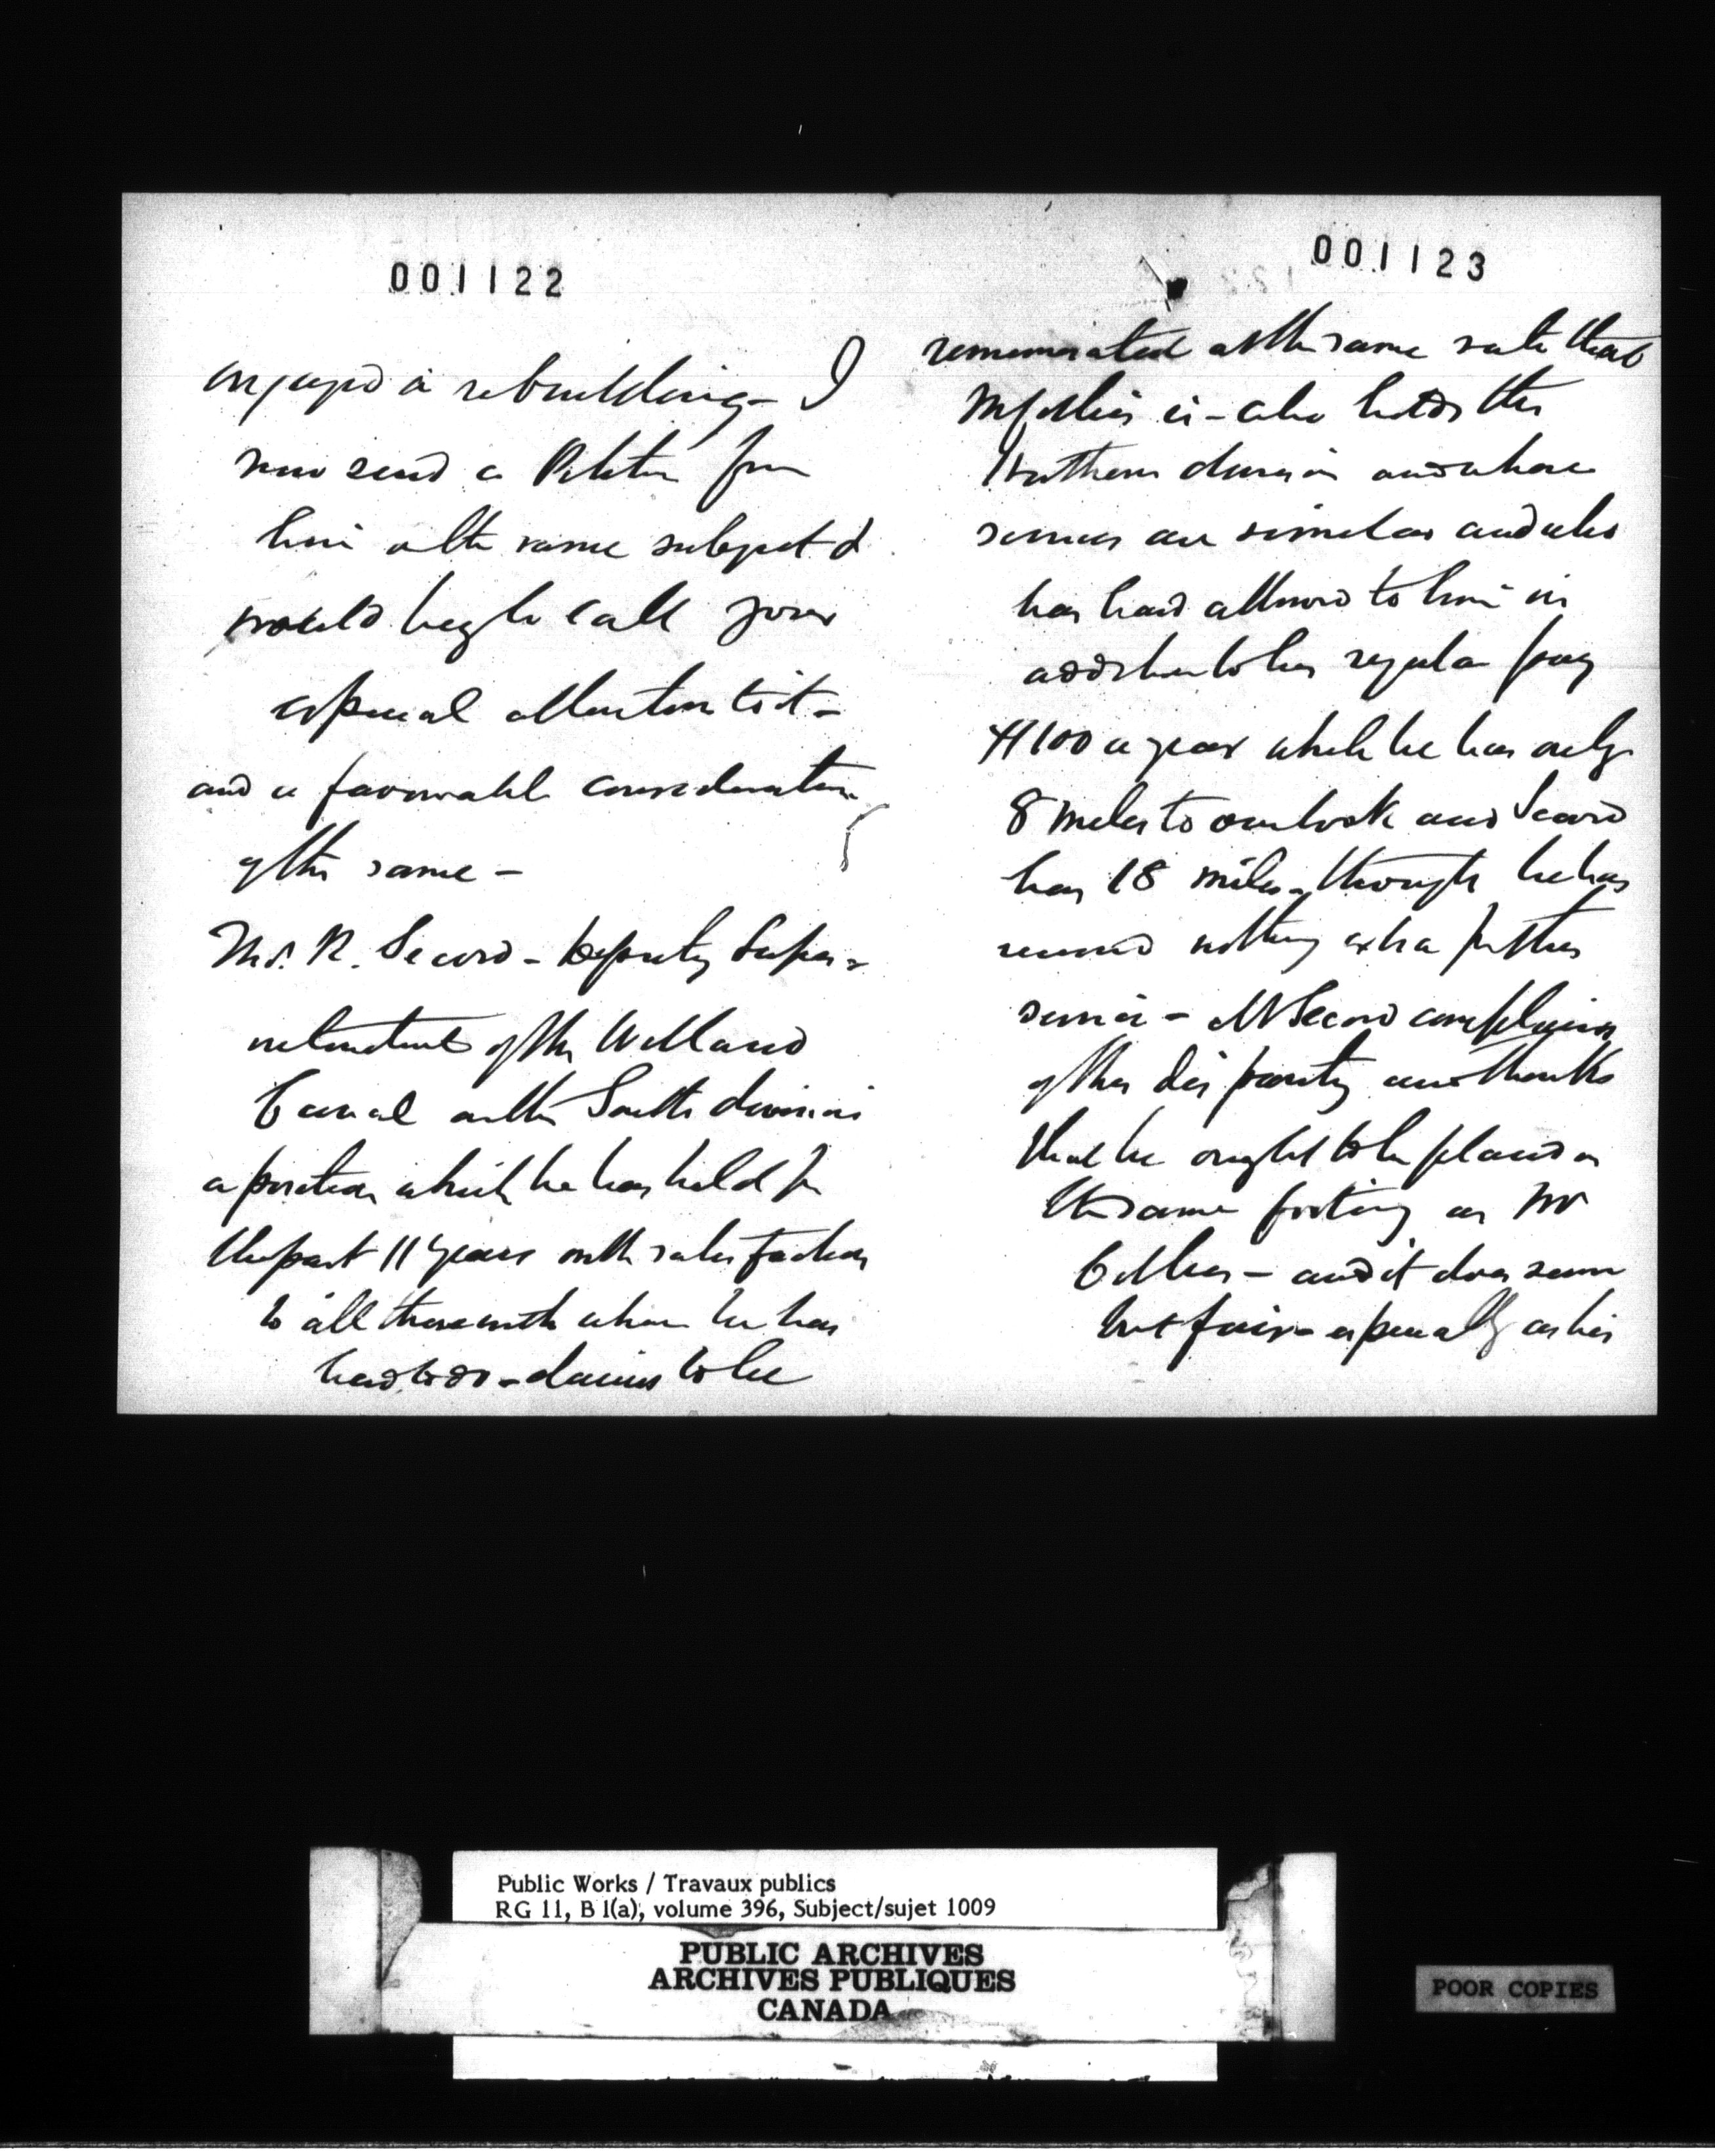 001122
engaged in rebuilding - I
now send a Petition from
him on the same subject &
would beg to call your
especial attention to it -
and a favourable consideration
of the same -
Mr. R. Secord - Deputy Super-
intendent of the Welland
Canal on the South division
a position which he has held for
the past 11 years with satisfaction
to all those with whom he has
had to do - claims to be
001123
remunerated at the same rate that
Mr is - who holds the
Northern division and whose
services are similar and who
has had allowed to him in
addition to his regular pay
$100 a year while he has only
8 miles to overlook and Secord
has 18 miles, though he has
received nothing extra for this
service - Mr Secord complains
of this disparity and thinks
that he ought to be placed on
the same footing as Mr
- and it does seem
but fair - especially as his
Public Works / Travaux publics
RG 11, B 1(a), volume 396, Subject/sujet 1009
PUBLIC ARCHIVES
ARCHIVES PUBLIQUES
CANADA
POOR COPIES